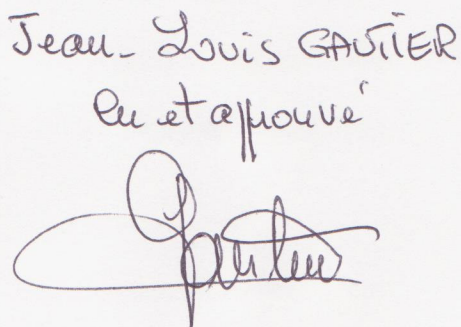 Jean-Louis GAUTIER
lu et approuvé
Gautier